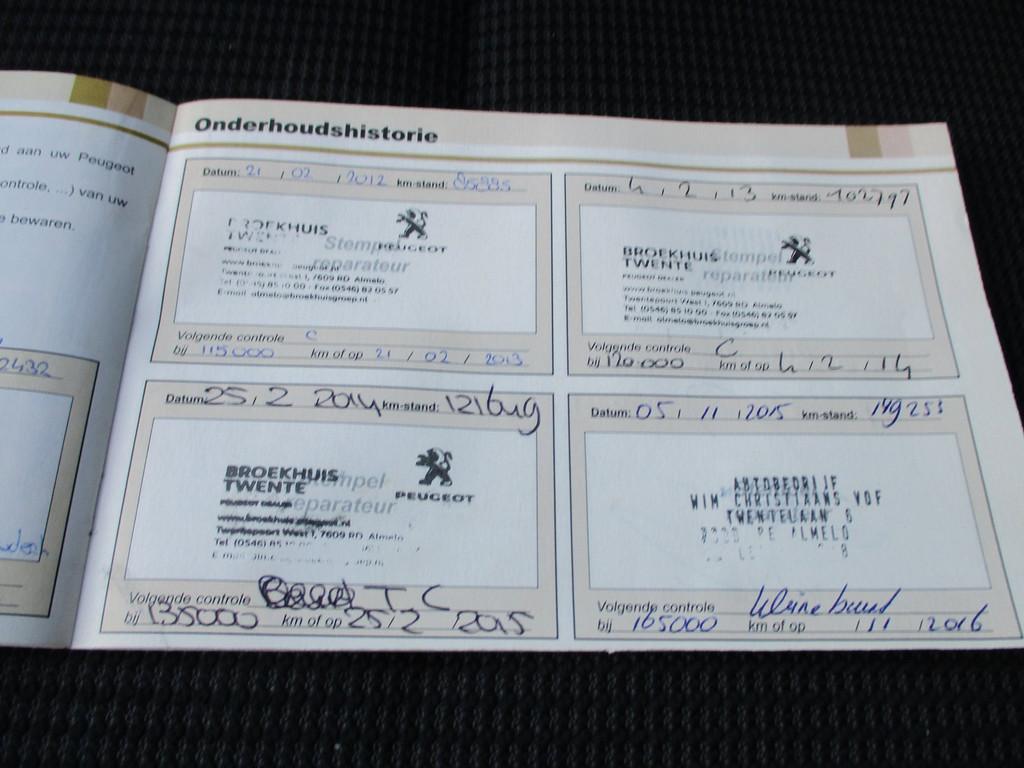 d aan uw Peugeot
ontrole, ...) van uw
e bewaren.
2432
Onderhoudshistorie
Datum: 21 / 02 / 2012 km-stand:
BROEKHUIS
TWENTE
PEUGEOT
Stempel
reparateur
Twentepoort West 1, 7609 RD Almelo
Tel (0546) 85 10 00 - Fax (0546) 82 05 57
E-mail almelo@broekhuisgroep.nl
Volgende controle C
bij 115000 km of op 21 / 02 / 2013
Datum: 4 / 2 / 13 km-stand: 102797
BROEKHUIS
TWENTE
PEUGEOT
Stempel
reparateur
PEUGEOT DEALER
www.broekhuis.peugeot.nl
Twentepoort West 1, 7609 RD Almelo
Tel. (0546) 85 10 00 - Fax (0546) 82 05 57
E-mail almelo@broekhuisgroep.nl
Volgende controle C
bij 120.000 km of op 4 / 2 / 14
Datum: 25 / 2 2014 km-stand: 121649
BROEKHUIS
TWENTE
PEUGEOT
Stempel
reparateur
PEUGEOT DEALER
www.broekhuis.peugeot.nl
Twentepoort West 1, 7609 RD Almelo
Tel. (0546) 85
Volgende controle T C
bij 135000 km of op 25 / 2 2015
Datum: 05 / 11 / 2015 km-stand: 149253
AUTOBEDRIJF
WIM CHRISTIAANS VOF
TWENTELAAN 8
ALMELO
Volgende controle kleine beurt
bij 165000 km of op / 11 / 2016